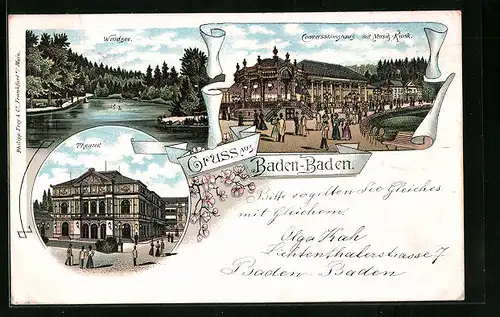 Waldsee.
Conversationshaus mit Musik-Kiosk.
Philipp Frey & Co, Frankfurt a/ Main.
Theater
GRUSS AUS
Baden-Baden.
Bitte vergelten Sie Gleiches
mit Gleichem.
Olga Kah
Lichtenthalerstrasse 7
Baden-Baden